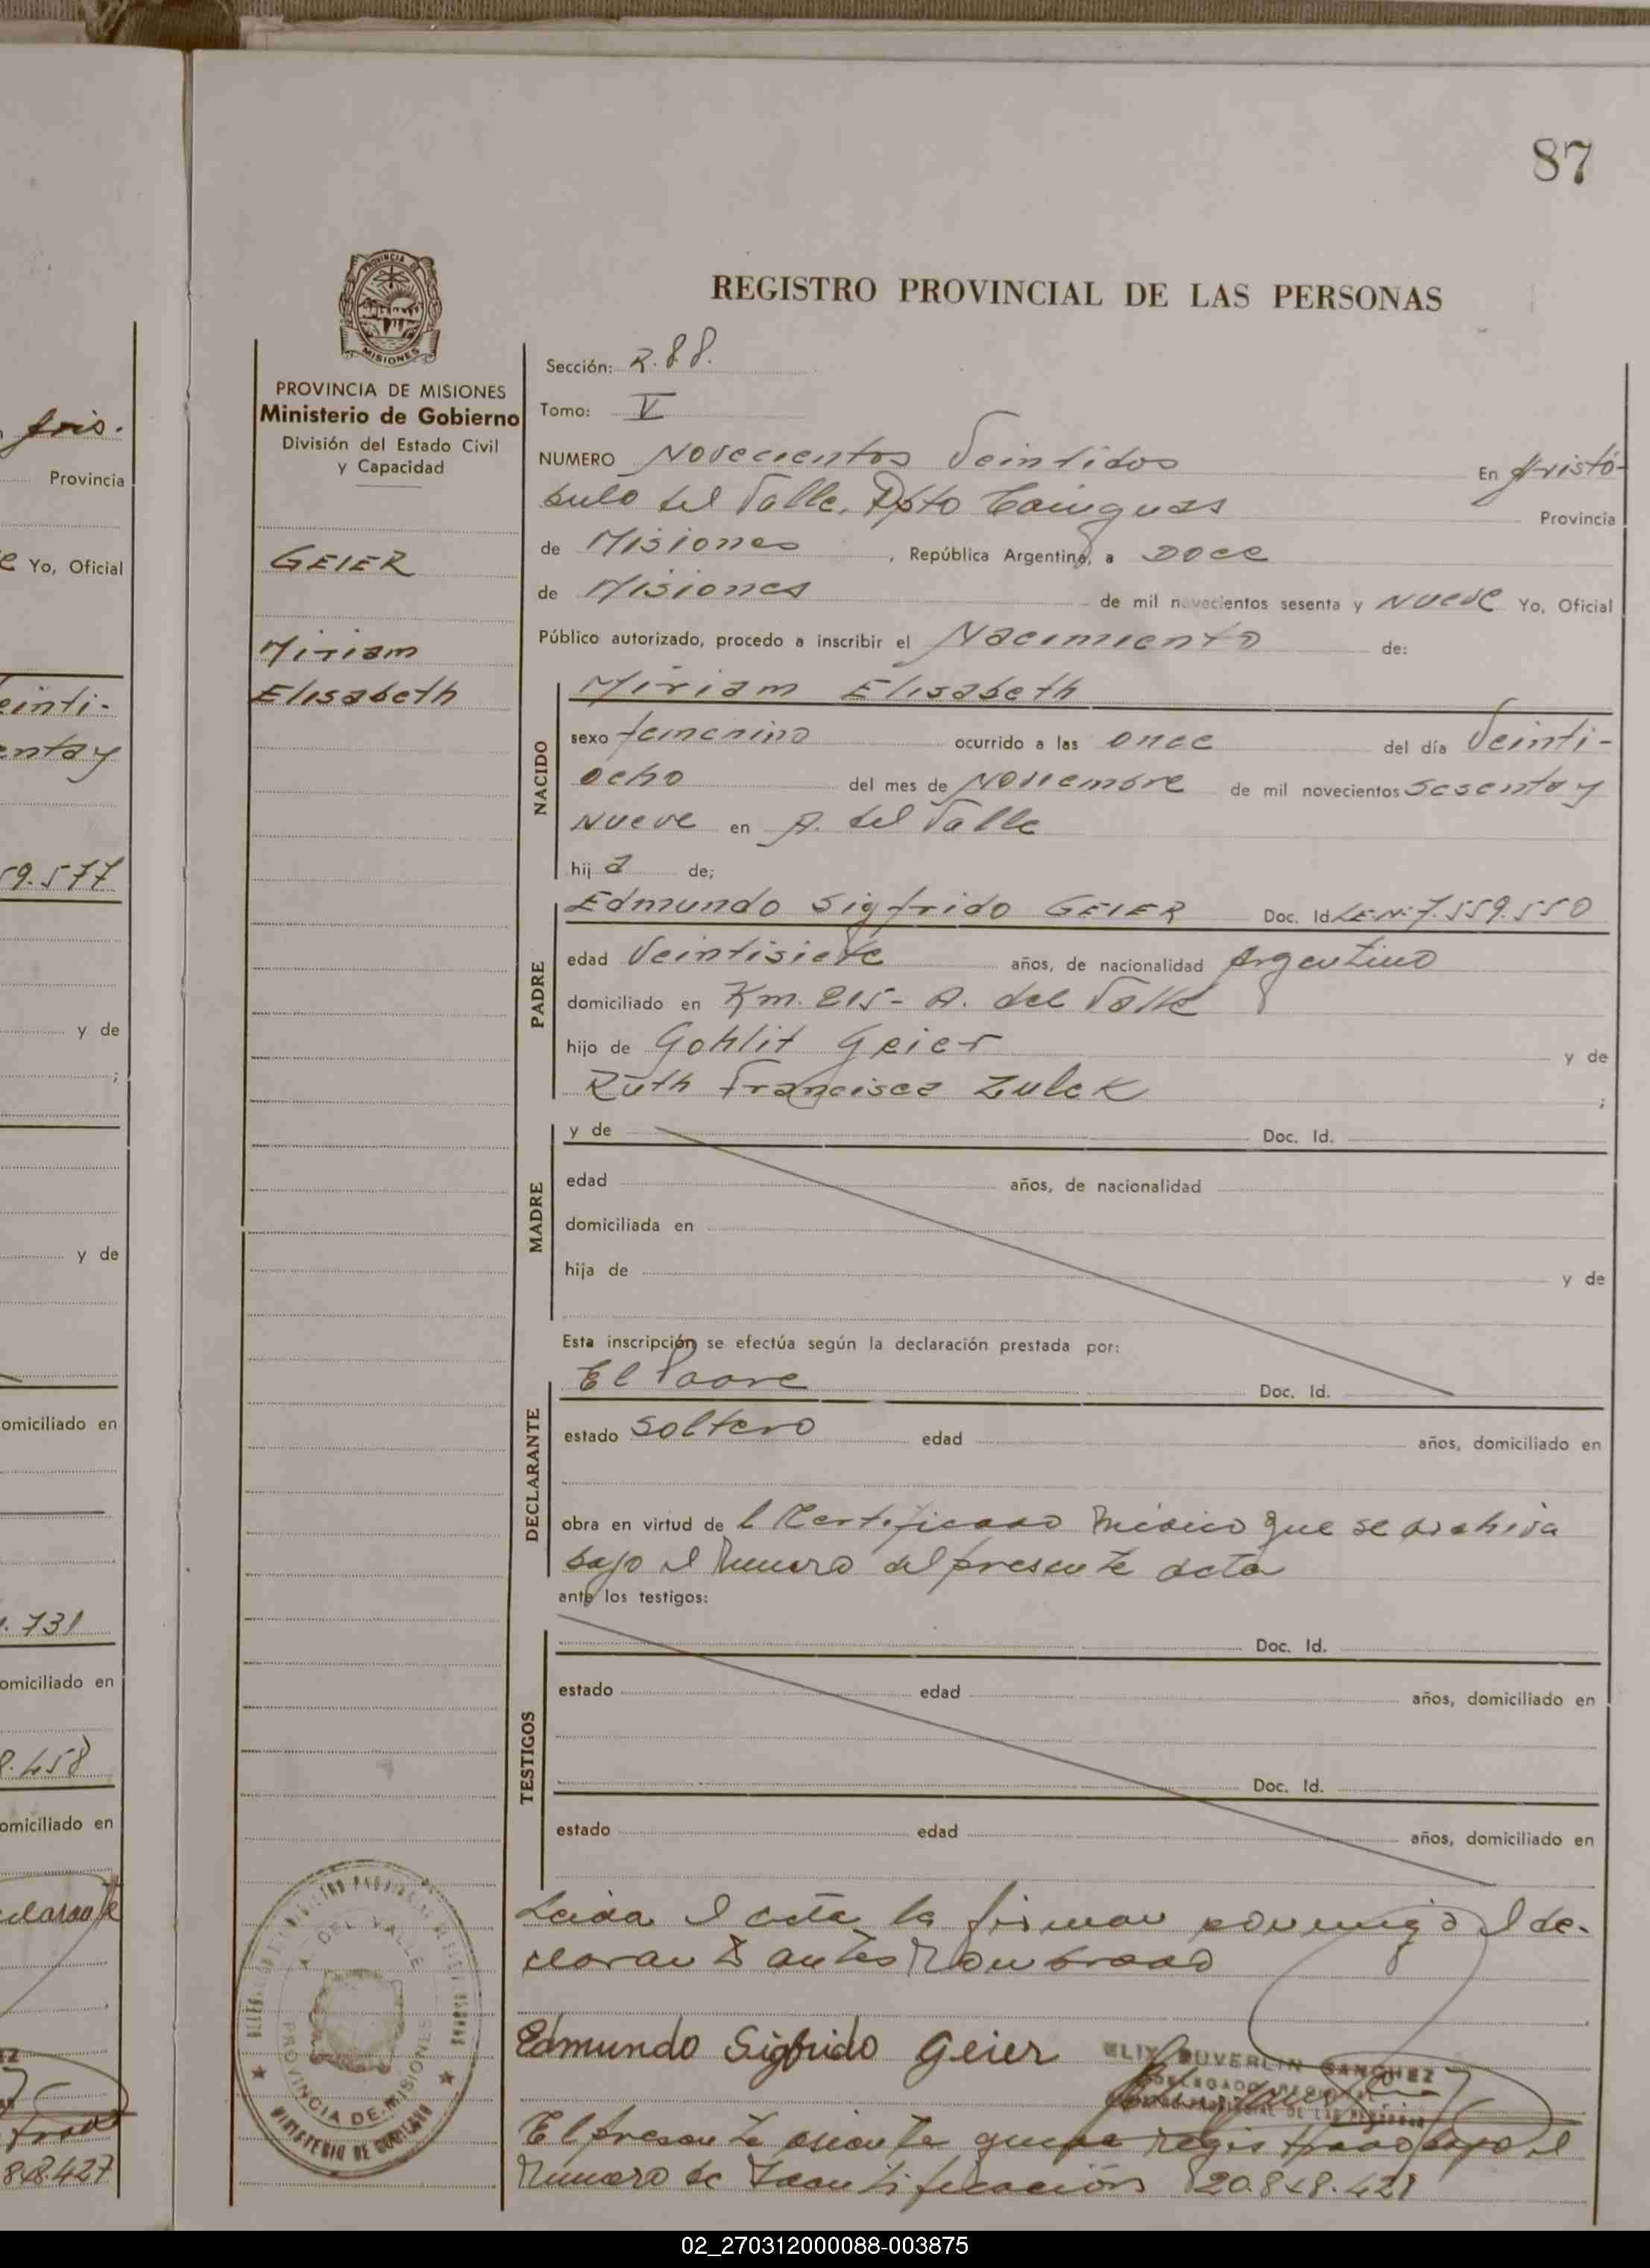 87
PROVINCIA DE
MISIONES
PROVINCIA DE MISIONES
Ministerio de Gobierno
División del Estado Civil
y Capacidad
GEIER
Miriam
Elisabeth
REGISTRO PROVINCIAL DE LAS PERSONAS
Sección: R.88.
Tomo: V
NUMERO Novecientos Veintidos En Aristó-
bulo del Valle, Dpto Cainguas Provincia
de Misiones, República Argentina, a Doce
de Misiones de mil novecientos sesenta y Nueve Yo, Oficial
Público autorizado, procedo a inscribir el Nacimiento de:
NACIDO
Miriam Elisabeth
sexo femenino ocurrido a las once del día Veinti-
ocho del mes de Noviembre de mil novecientos sesenta y
Nueve en A. del Valle
hij a de;
PADRE
Edmundo Sigfrido GEIER Doc. Id. L.E.Nº 7.559.550
edad Veintisiete años, de nacionalidad Argentino
domiciliado en Km. 215- A. del Valle
hijo de Gohlit Geier y de
Ruth Francisca Zulek ;
MADRE
y de Doc. Id.
edad años, de nacionalidad
domiciliada en
hija de y de
Esta inscripción se efectúa según la declaración prestada por:
DECLARANTE
El Padre Doc. Id.
estado soltero edad años, domiciliado en
obra en virtud de l Certificado Médico que se archiva
bajo el Numero del presente acta
ante los testigos:
TESTIGOS
Doc. Id.
estado edad años, domiciliado en
Doc. Id.
estado edad años, domiciliado en
Leida el acta la firman conmigo el de-
clarante antes Nombrado
Edmundo Sigfrido Geier
ELIX DUVERLIN SANCHEZ
DELEGADO
El presente asiento queda registrado bajo el
Numero de Identificación 20.848.428
A. DEL VALLE
PROVINCIA DE MISIONES
MINISTERIO DE GOBIERNO
fris.
Provincia
Yo, Oficial
einti-
enta y
59.577
y de
;
y de
omiciliado en
.731
omiciliado en
8.458
omiciliado en
clarante
848.427
02_270312000088-003875